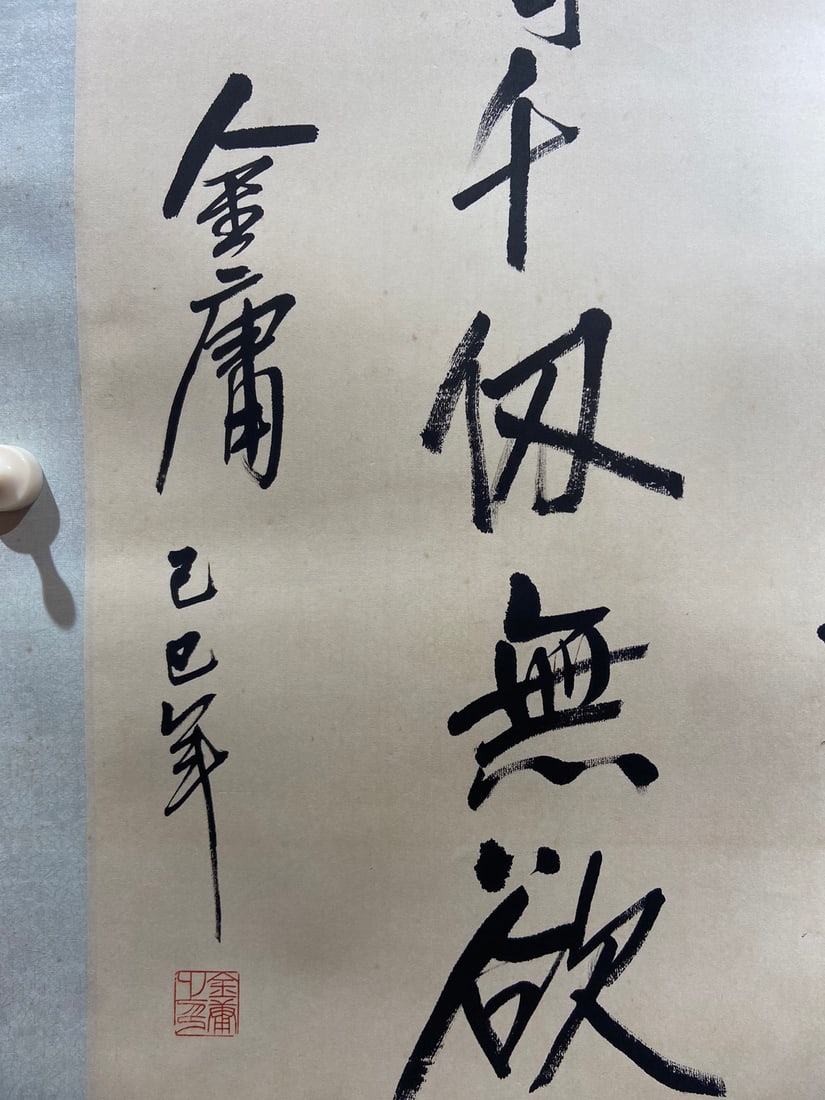 千仞無欲
金庸
己巳年
金庸
之印